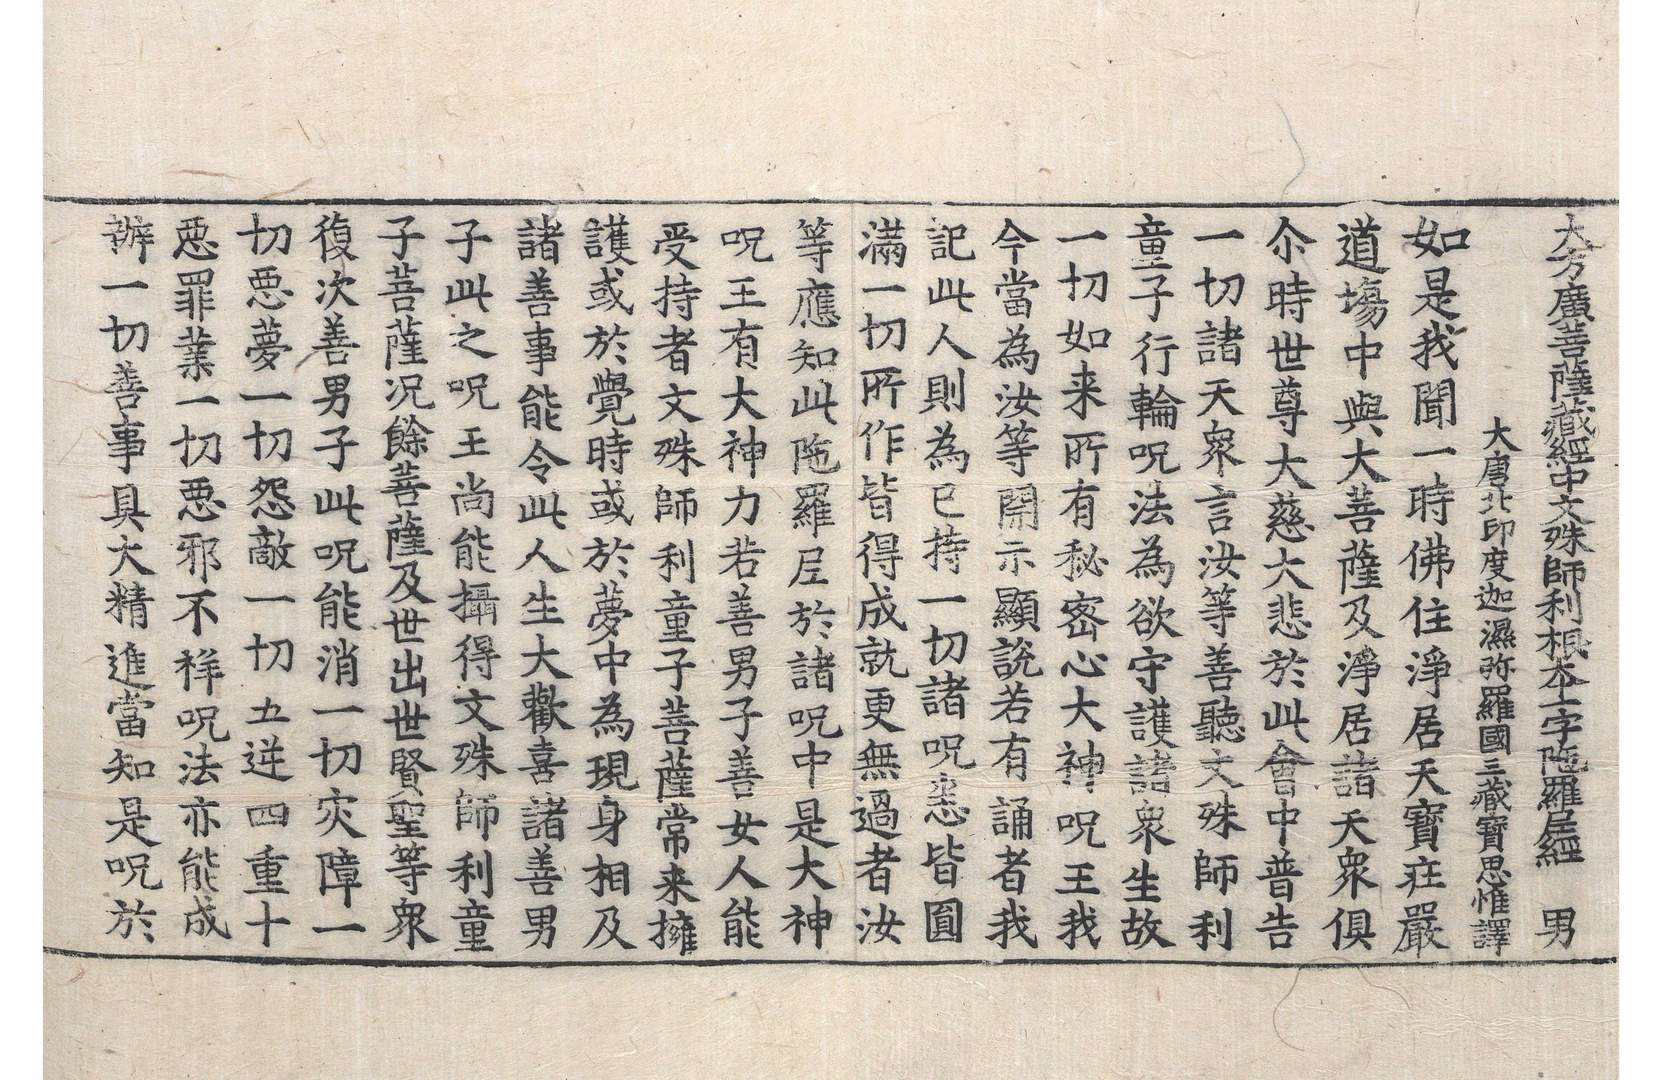 大方廣菩薩藏經中文殊師利根本一字陁羅尼經 男
大唐北印度迦濕弥羅國三藏寶思惟譯
如是我聞一時佛住淨居天寶莊嚴
道塲中與大菩薩及淨居諸天衆俱
尒時世尊大慈大悲於此會中普告
一切諸天衆言汝等善聽文殊師利
童子行輪呪法為欲守護諸衆生故
一切如来所有秘密心大神呪王我
今當為汝等開示顯說若有誦者我
記此人則為已持一切諸呪悉皆圓
滿一切所作皆得成就更無過者汝
等應知此陁羅尼於諸呪中是大神
呪王有大神力若善男子善女人能
受持者文殊師利童子菩薩常来擁
護或於覺時或於夢中為現身相及
諸善事能令此人生大歡喜諸善男
子此之呪王尚能攝得文殊師利童
子菩薩况餘菩薩及世出世賢聖等衆
復次善男子此呪能消一切灾障一
切惡夢一切怨敵一切五逆四重十
惡罪業一切惡邪不祥呪法亦能成
辦一切善事具大精進當知是呪於